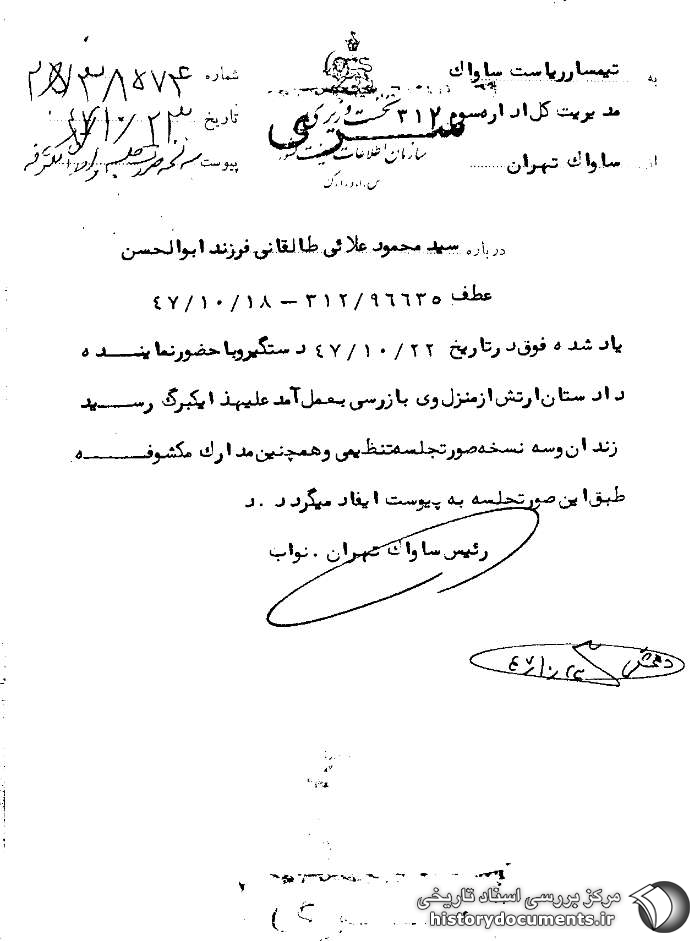 به تیمسار ریاست ساواک
مدیریت کل اداره سوم ۳۱۲
از ساواک تهران
نخست وزیری
سازمان اطلاعات و امنیت کشور
س.ا.و.ا.ک
سری
شماره
تاریخ ۴۷/۱۰/۲۳
پیوست
درباره سید محمود علائی طالقانی فرزند ابوالحسن
عطف ۳۱۲/۹۶۶۳۵ – ۴۷/۱۰/۱۸
یاد شده فوق در تاریخ ۴۷/۱۰/۲۲ دستگیر و با حضور نماینده
دادستان ارتش از منزل وی بازرسی بعمل آمد علیهذا یکبرگ رسید
زندان و سه نسخه صورتجلسه تنظیمی و همچنین مدارک مکشوفه
طبق این صورتجلسه به پیوست ایفاد میگردد . د
رئیس ساواک تهران . نواب
۴۷/۱۰/۲۳
مرکز بررسی اسناد تاریخی
historydocuments.ir